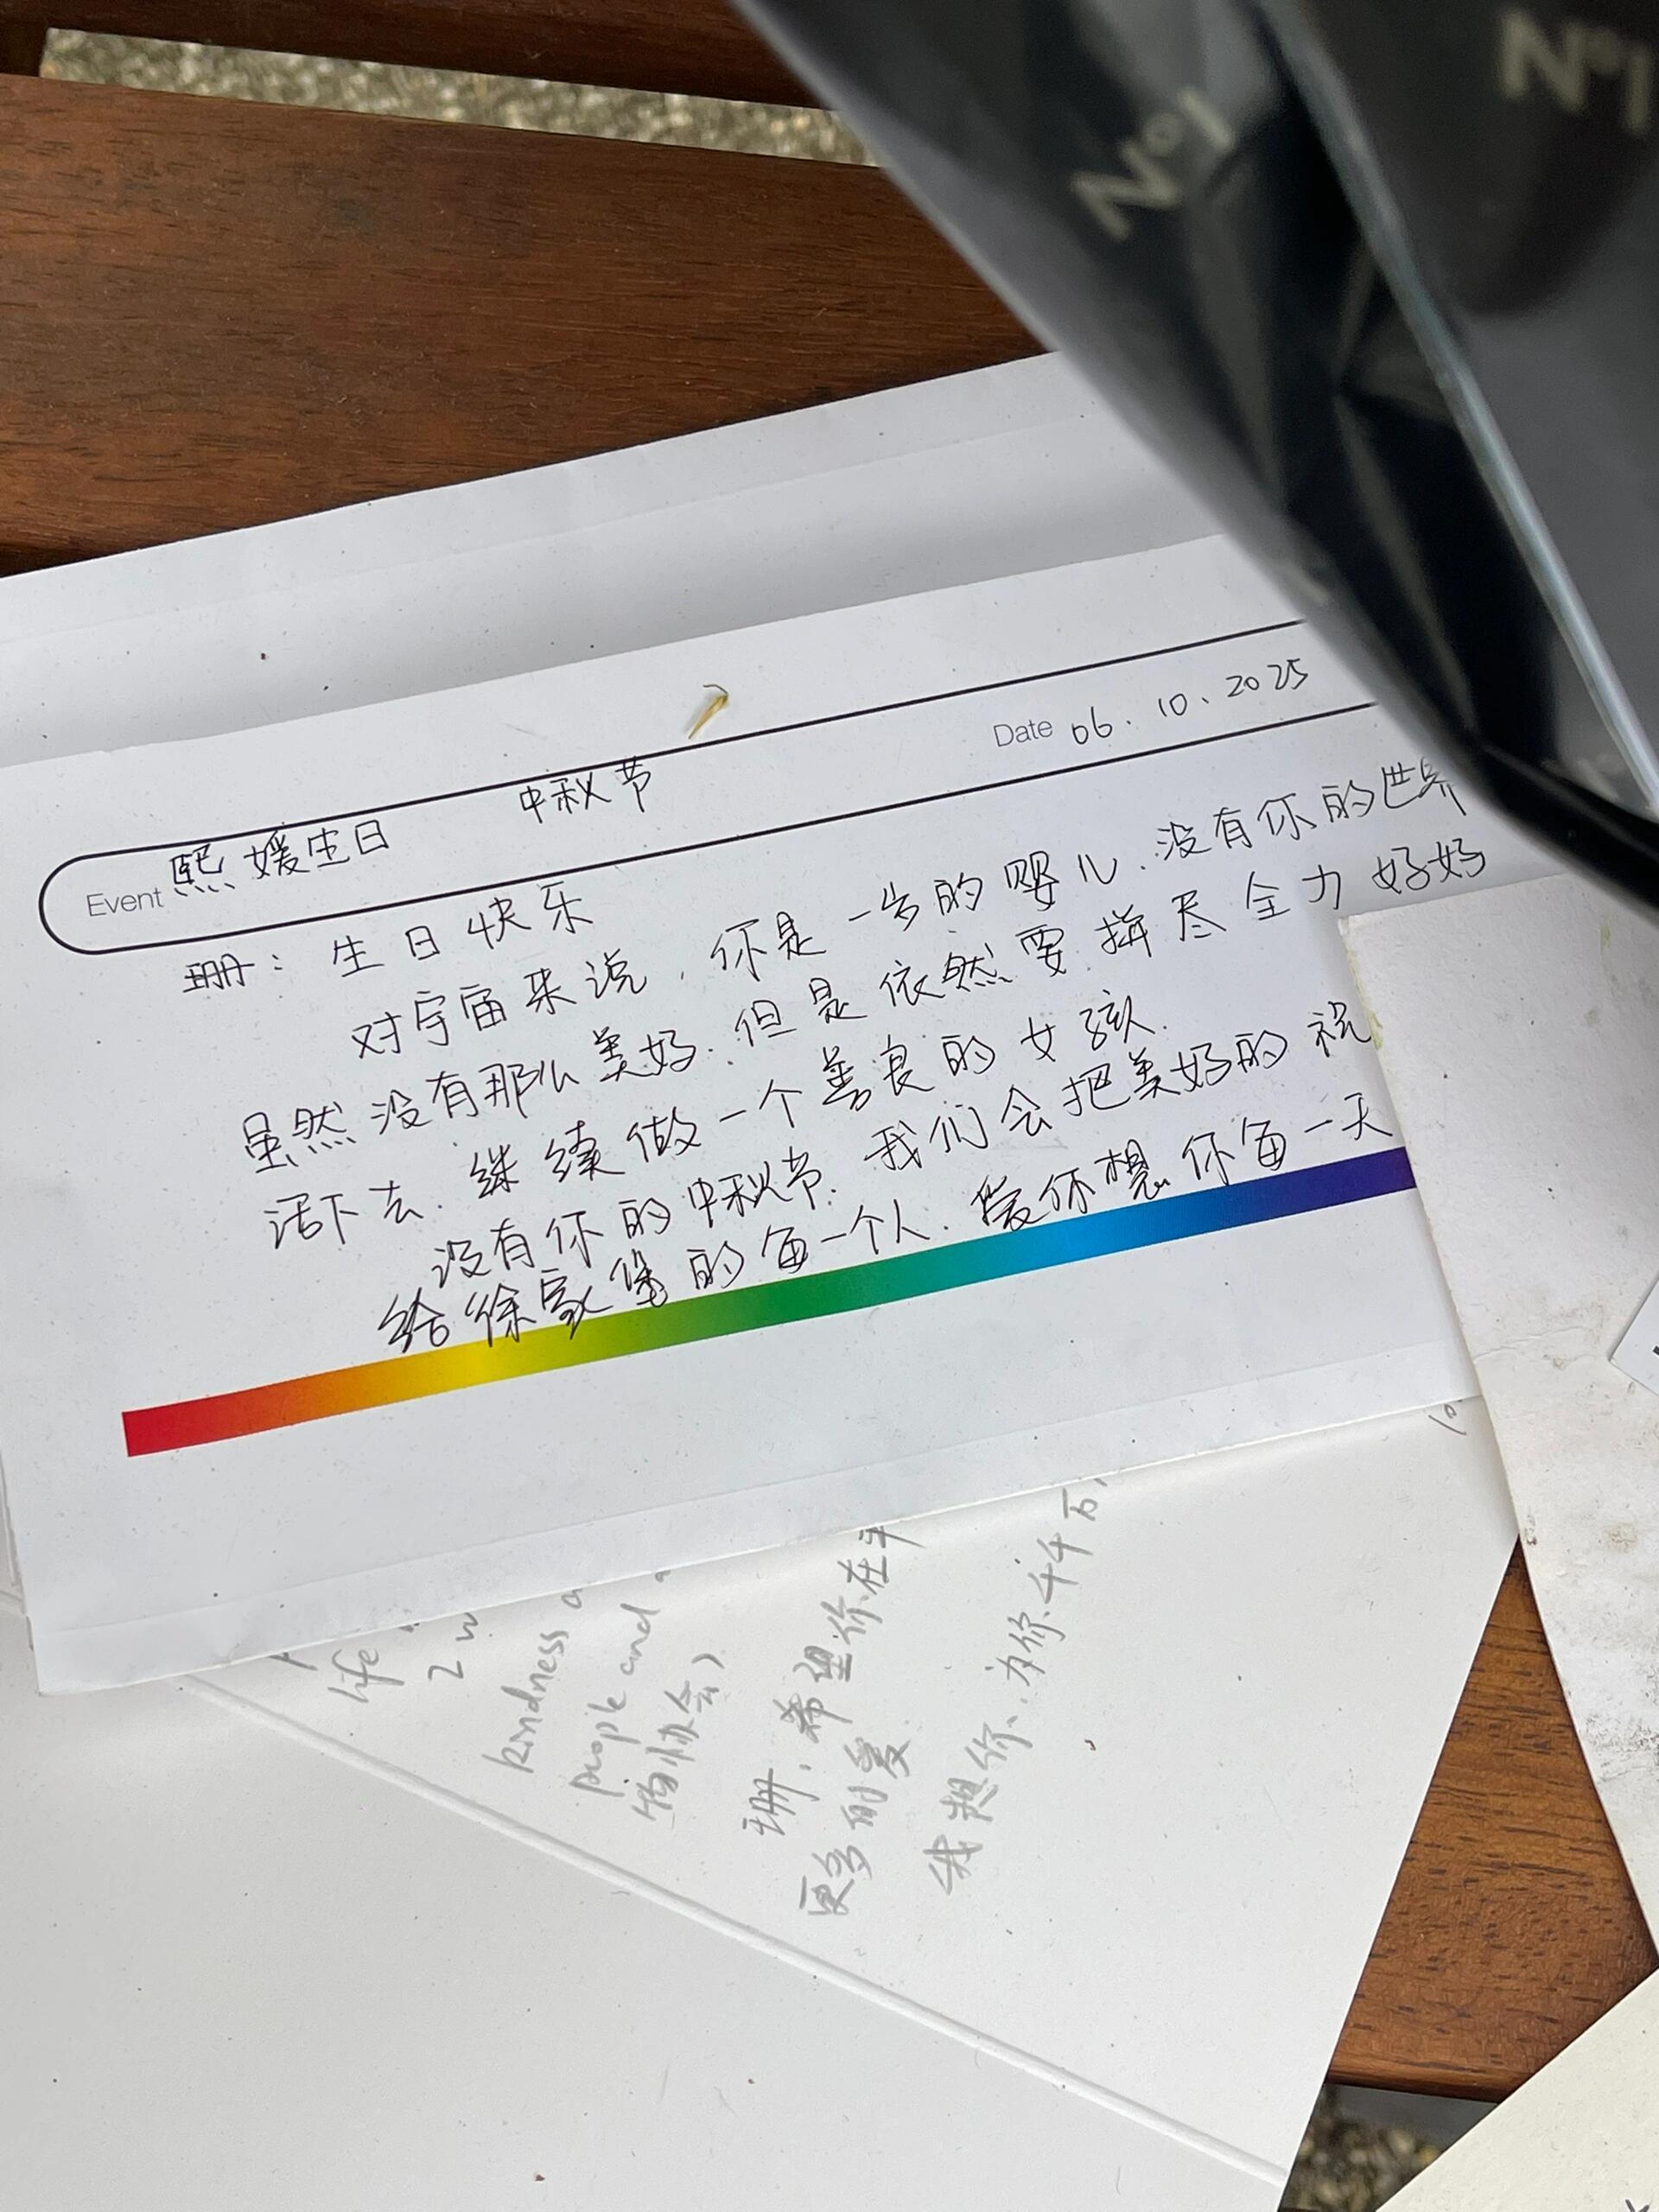 N°1
N°1
Event 熙媛生日 中秋节 Date 06.10.2025
珊：生日快乐
对宇宙来说，你是一岁的婴儿.没有你的世界
虽然没有那么美好.但是依然要拼尽全力好好
活下去.继续做一个善良的女孩.
没有你的中秋节.我们会把美好的祝
给徐家堡的每一个人.爱你想你每一天
life
2 w
kindness
people and
物协会）
珊，希望你在
更多的爱
我想你，为你千千万